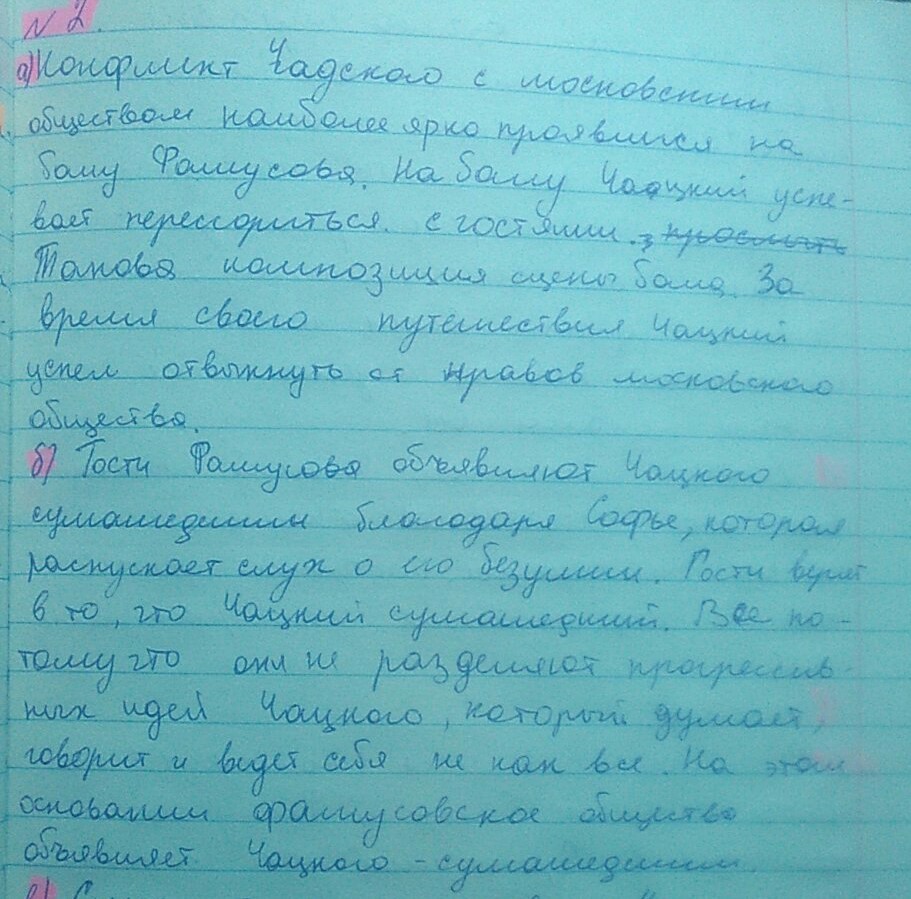 № 2.
а) Конфликт Чадского с московским
обществом наиболее ярко проявился на
балу Фамусова. На балу Чаацкий успе-
вает перессориться с гостями.
Такова композиция сцены бала. За
время своего путешествия Чацкий
успел отвыкнуть от нравов московского
общества.
б) Гости Фамусова объявляют Чацкого
сумашедшим благодаря Софье, которая
распускает слух о его безумии. Гости верят
в то, что Чацкий сумашедший. Все по-
тому что они не разделяют прогрессив-
ных идей Чацкого, который думает,
говорит и ведет себя не как все. На этом
основании фамусовское общество
объявляет Чацкого - сумашедшим.